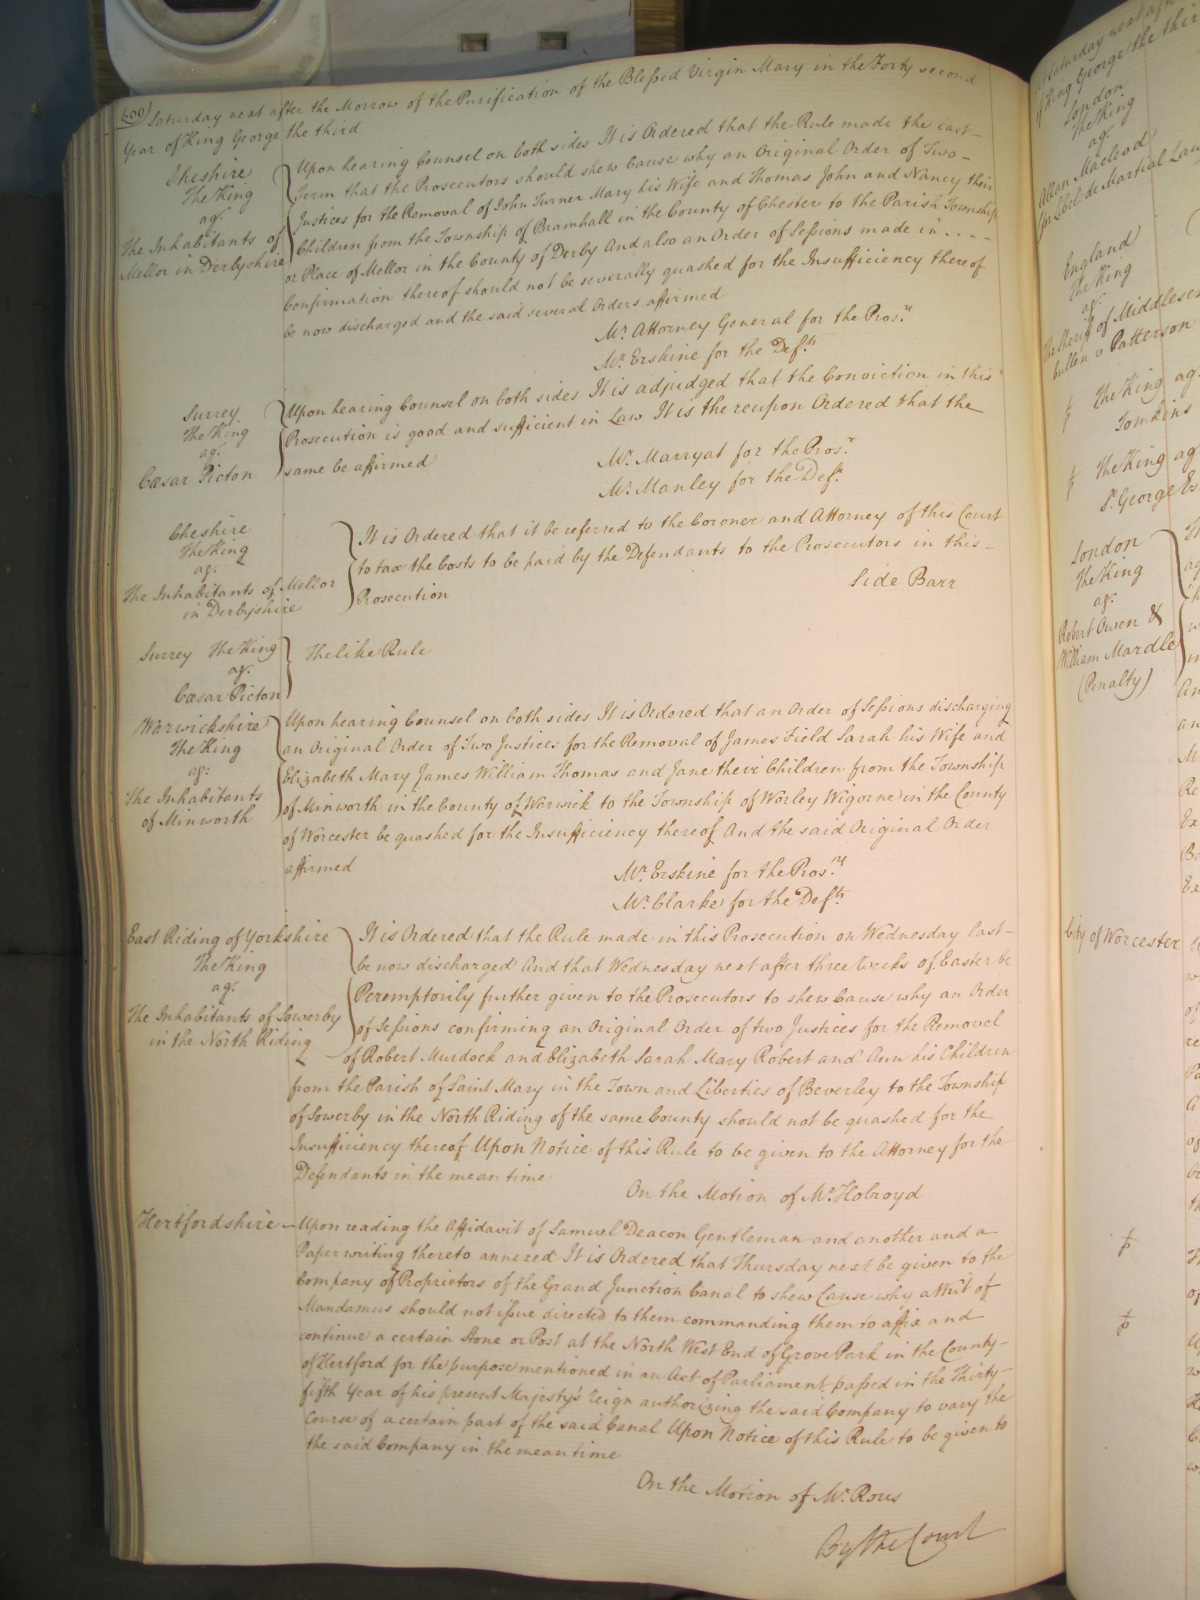 600) Saturday next after the Morrow of the Purification of the Blessed Virgin Mary in the Forty second
Year of King George the third
Cheshire
The King
agt.
The Inhabitants of
Mellor in Derbyshire
Upon hearing Counsel on both sides It is Ordered that the Rule made the last
Term that the Prosecutors should shew Cause why an Original Order of Two
Justices for the Removal of John Turner Mary his Wife and Thomas John and Nancy their
Children from the Township of Bramhall in the County of Chester to the Parish Township
or Place of Mellor in the County of Derby And also an Order of Sessions made in - - - -
Confirmation thereof should not be severally quashed for the Insufficiency thereof
be now discharged and the said several Orders affirmed
Mr. Attorney General for the Pros.rs
Mr. Erskine for the Def.ts
Surrey
The King
agt.
Cæsar Picton
Upon hearing Counsel on both sides It is adjudged that the Conviction in this
Prosecution is good and sufficient in Law It is thereupon Ordered that the
same be affirmed
Mr. Marryat for the Pros.r
Mr. Manley for the Def.t
Cheshire
The King
agt.
The Inhabitants of Mellor
in Derbyshire
It is Ordered that it be referred to the Coroner and Attorney of this Court
to tax the Costs to be paid by the Defendants to the Prosecutors in this
Prosecution
Side Barr
Surrey The King
agt.
Cæsar Picton
The like Rule
Warwickshire
The King
agt.
The Inhabitants
of Minworth
Upon hearing Counsel on both sides It is Ordered that an Order of Sessions discharging
an Original Order of Two Justices for the Removal of James Field Sarah his Wife and
Elizabeth Mary James William Thomas and Jane their Children from the Township
of Minworth in the County of Warwick to the Township of Worley Wigorne in the County
of Worcester be quashed for the Insufficiency thereof And the said Original Order
affirmed
Mr. Erskine for the Pros.rs
Mr. Clarke for the Def.ts
East Riding of Yorkshire
The King
agt.
The Inhabitants of Sowerby
in the North Riding
It is Ordered that the Rule made in this Prosecution on Wednesday last
be now discharged And that Wednesday next after three Weeks of Easter be
Peremptorily further given to the Prosecutors to shew Cause why an Order
of Sessions confirming an Original Order of two Justices for the Removal
of Robert Murdock and Elizabeth Sarah Mary Robert and Ann his Children
from the Parish of Saint Mary in the Town and Liberties of Beverley to the Township
of Sowerby in the North Riding of the same County should not be quashed for the
Insufficiency thereof Upon Notice of this Rule to be given to the Attorney for the
Defendants in the mean time
On the Motion of Mr. Holroyd
Hertfordshire
Upon reading the Affidavit of Samuel Deacon Gentleman and another and a
Paper writing thereto annexed It is Ordered that Thursday next be given to the
Company of Proprietors of the Grand Junction Canal to shew Cause why a Writ of
Mandamus should not issue directed to them commanding them to affix and
continue a certain Stone or Post at the North West End of Grove Park in the County
of Hertford for the purpose mentioned in an Act of Parliament passed in the Thirty
fifth Year of his present Majesty's reign authorizing the said Company to vary the
Course of a certain part of the said Canal Upon Notice of this Rule to be given to
the said Company in the mean time
On the Motion of Mr. Rous
By the Court
Saturday next after
of King George the third
London
The King
agt.
Allan Macleod
for Libels Martial Law
England
The King
agt.
The Sheriff of Middlesex
Cullen v Patterson
The King agt.
Tomkins
The King agt.
St. George Es
London
The King
agt.
Robert Owen &
William Mardle
(Penalty)
City of Worcester